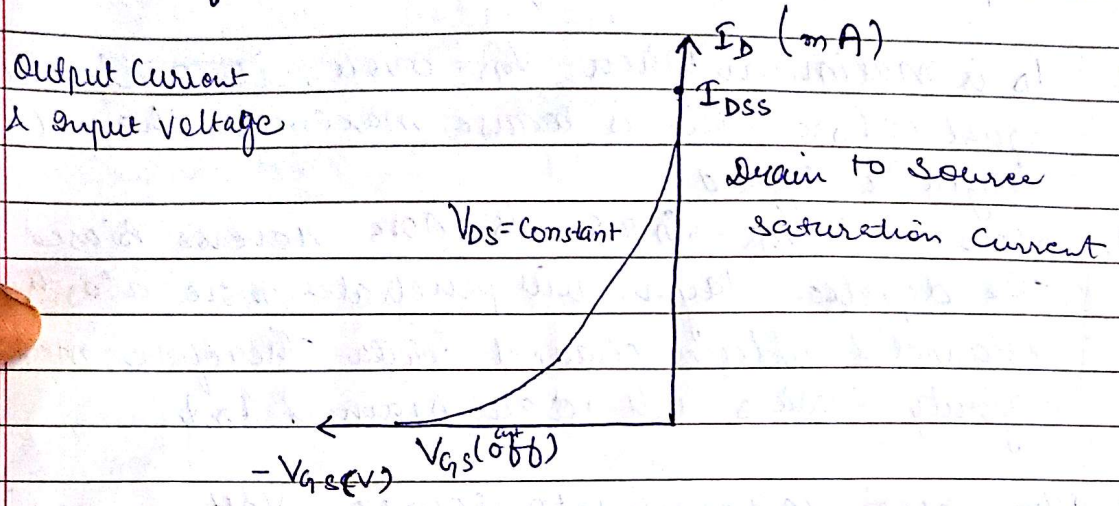 Output Current
& Input Voltage
I_D (mA)
I_DSS
Drain to Source
saturation current
V_DS = Constant
V_GS (cut off)
- V_GS (V)